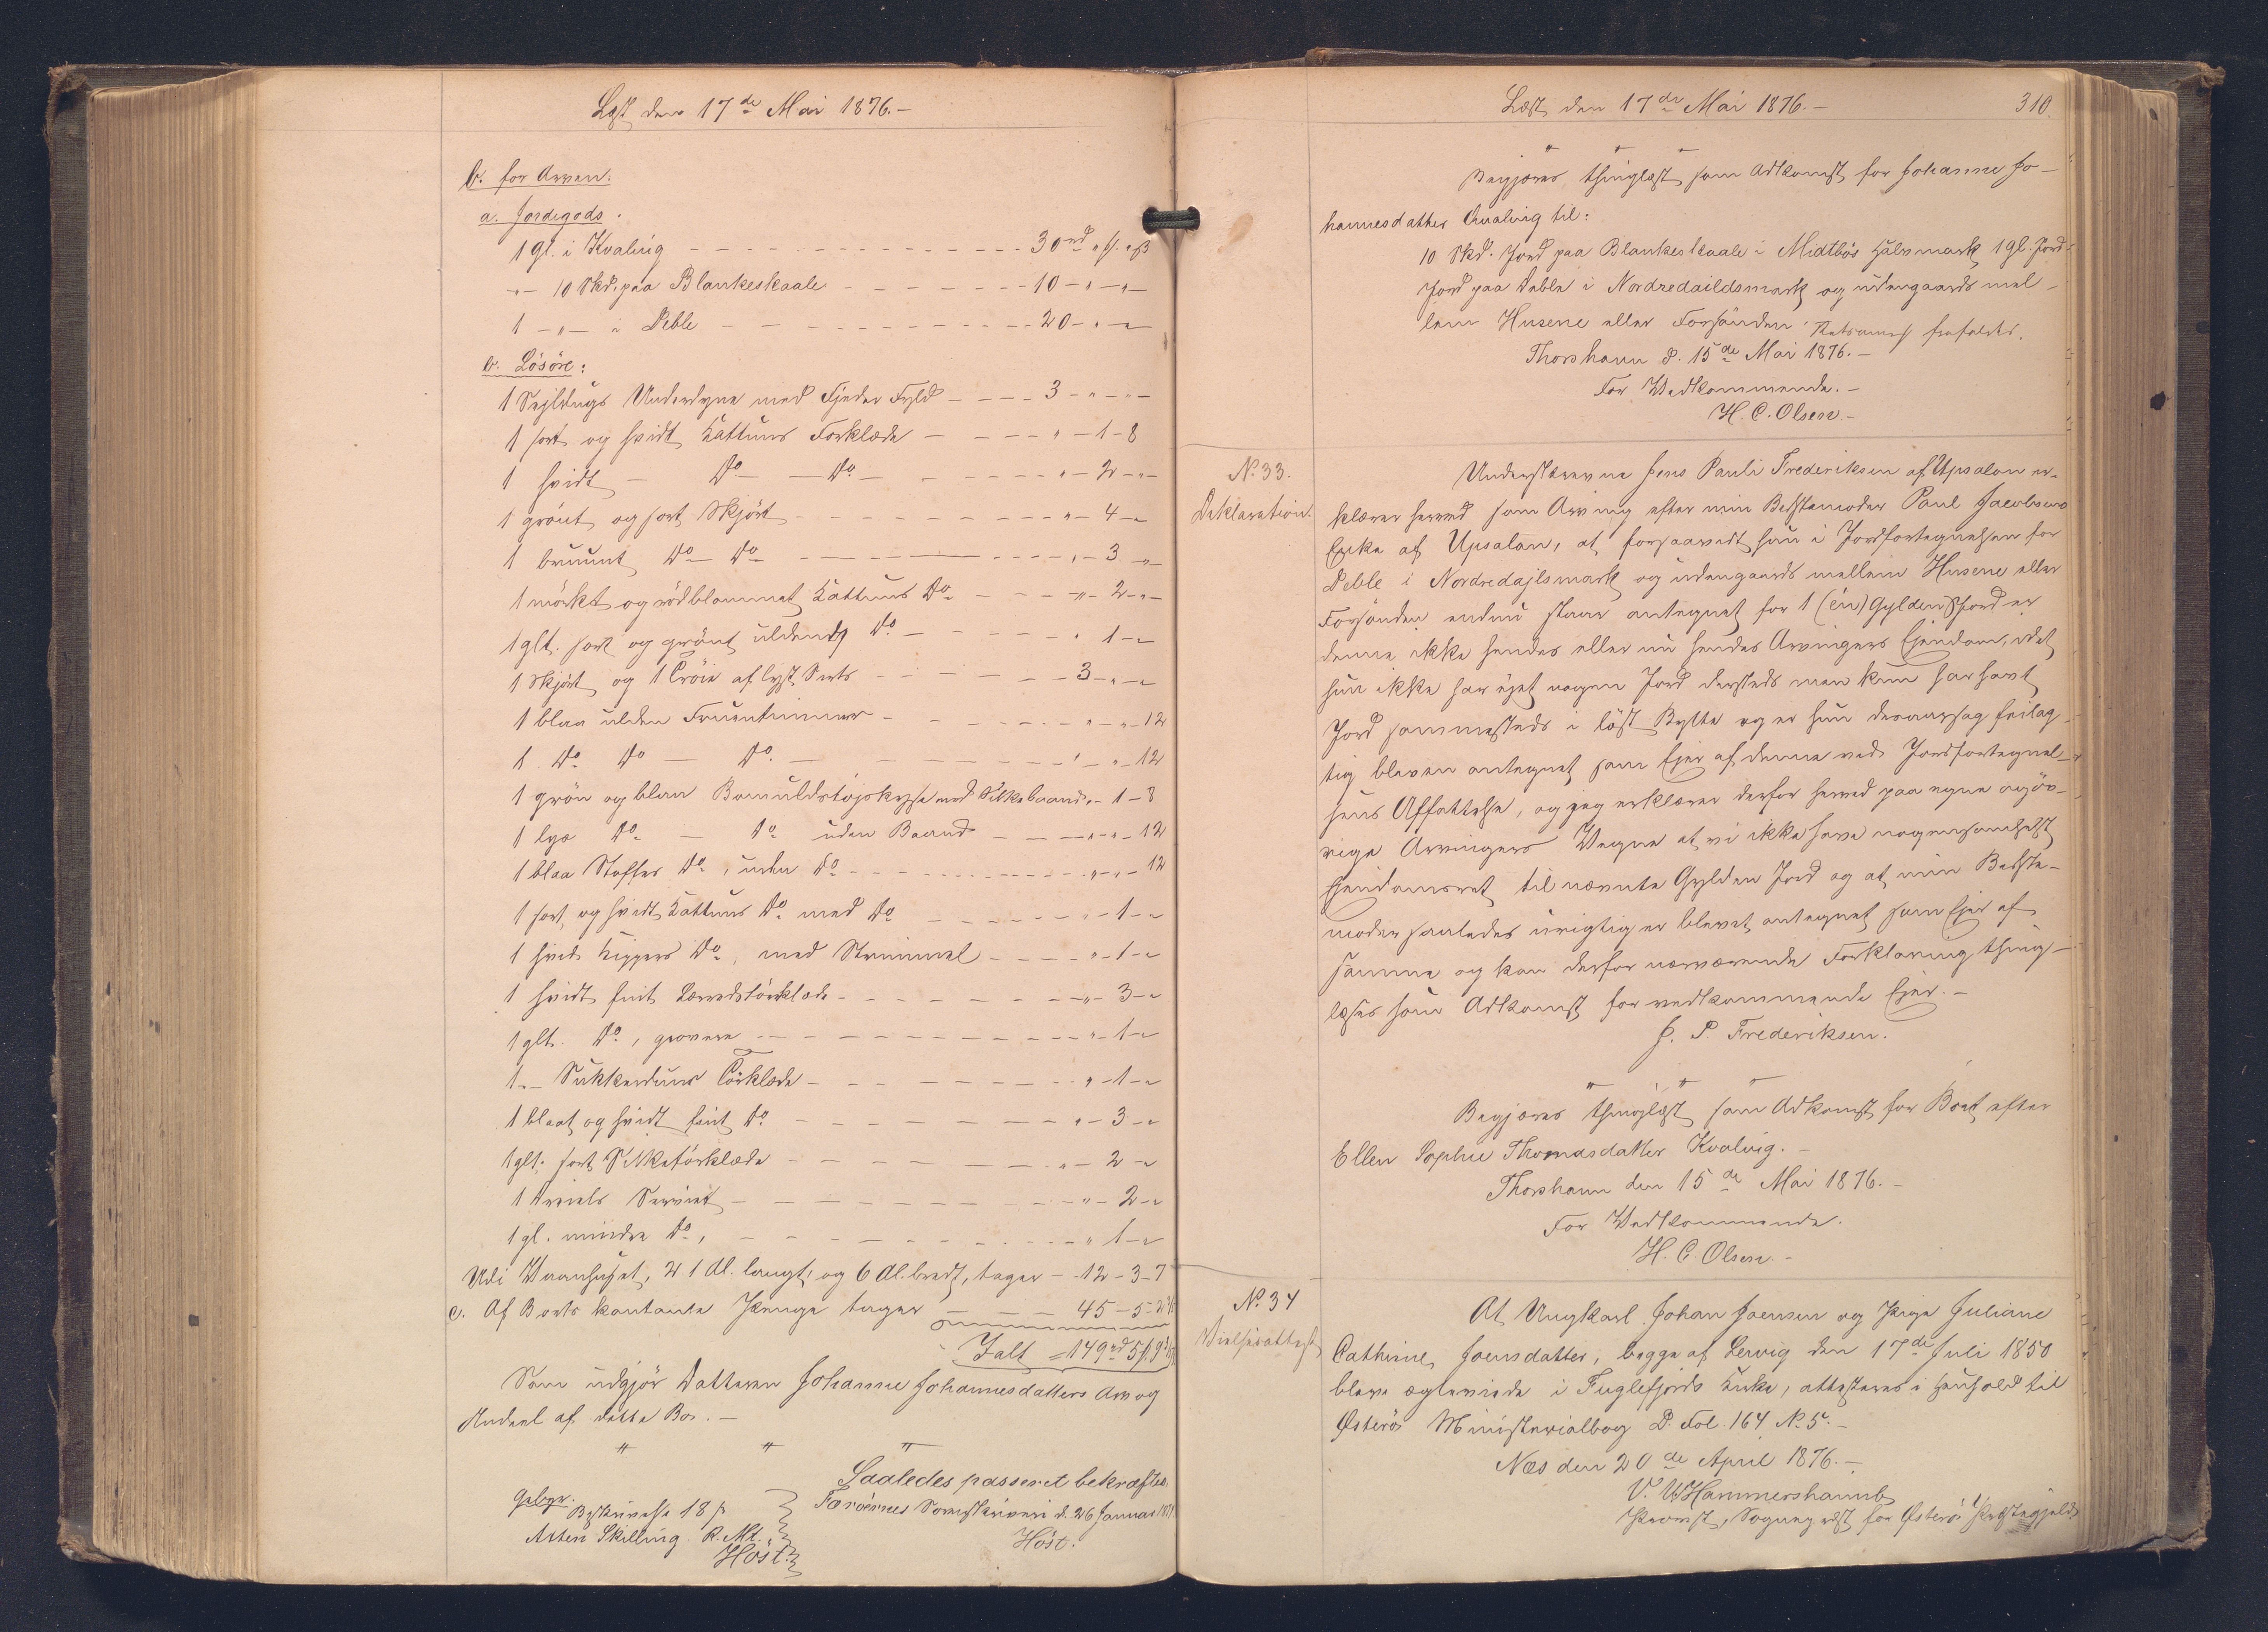 Læst den 17de Mai 1876.-
b. for Arven:
a. Jordegods.
1 Gl. i Kvalvig - - - 30rd " s. " ß
-"- 10 Skd. paa Blankeskaale - - - 10 - " - " -
1 - " - i Deble - - - 20 - " - "
b. Lösöre:
1 Sejldugs Underdyne med Fjeder Fyld - - - 3 - " - " -
1 sort og hvidt Kattuns Forklæde - - - " - 1 - 8
1 hvidt - Do - Do - - - " - 2 - " -
1 grönt og sort Skjört - - - " - 4 - "
1 bruunt Do - Do - - - " - 3 - "
1 mörkt og rödblommet Kattuns Do - - - " - 2 - " -
1 glt. sort og grönt uldent Do - - - " 1 - "
1 Skjört og 1 Tröie af lyst Sirts - - - 3 - " - "
1 blaa ulden Fruentimmer - - - " - " - 12
1 Do Do - Do. - - - " - " - 12
1 grön og blaa Bomuldstöjskyse med Silkebaand " - 1 - 8
1 lys Do - Do uden Baand - - - " - " - 12
1 blaa Stoffes Do, uden Do - - - " - " - 12
1 sort og hvidt Kattuns Do med Do - - - " - 1 - "
1 hvid Kippers Do, med Strimmel - - - " - 1 - "
1 hvidt fint Lærredstörklæde - - - " - 3 - "
1 glt. Do, grovere - - - " - 1 - "
1 - " Törklæde - - - " - 1 - "
1 blaat og hvidt fint Do - - - " - 3 - "
1 glt. sort Silketörklæde - - - " - 2 - "
1 Dreiels Serviet - - - " - 2 - "
1 gl. mindre Do, - - - " 1 - "
Udi Vaanhuset, 21 Al. langt, og 6 Al. bredt, tager - 12 - 3 - 7
c. Af Boets kontante Penge tager - - - 45 - 5 -
Ialt = 149rd 5 s.
Som udgjör Datteren Johanne Johannesdatters Arv og
Andeel af dette Bo. -
" " "
Saaledes passeret bekræftes
Gebyr. Færöernes Sorenskriveri d. 26 Januar
Beskrivelse 18 s
Atten Skilling R. Mt. Höst.
Höst.
Læst den 17de Mai 1876.- 310.
" " "
Begjæres thinglæst som Adkomst for Johanne Jo-
hannesdatter Qualvig til:
10 Skd. Jord paa Blankeskaale i Midtbös Halvmark 1 Gl. Jord
Jord paa Deble i Nordredaildsmark og udengaards mel-
lem Husene eller Forsönden frafaldes.
Thorshavn d. 15de Mai 1876.-
For Vedkommende.-
H. C. Olsen-
No. 33.
Deklaration.
Underskrevne Jens Pauli Frederiksen af Upsalon er-
klærer herved som Arving efter min Bedstemoder Paul Jacobsens
Enke af Upsalon, at forsaavidt hun i Jordfortegnelsen for
Deble i Nordredajlsmark og udengaards mellem Husene eller
Forsönden endnu staar antegnet for 1 (én) Gylden Jord er
denne ikke hendes eller nu hendes Arvingers Ejendom, idet
hun ikke har ejet nogen Jord dersteds men kun har havt
Jord sammesteds i löst Bytte og er hun desaarsag feilag-
tig bleven antegnet som Ejer af denne ved Jordfortegnel-
sens Affattelse, og jeg erklærer derfor herved paa egne og öv-
rige Arvingers Vegne at vi ikke have nogensomhelst
Ejendomsret til nævnte Gylden Jord og at min Bedste-
moder saaledes urigtig er blevet antegnet som Ejer af
samme og kan derfor nærværende Forklaring thing-
læses som Adkomst for vedkommende Ejer.-
J. P. Frederiksen.
" " "
Begjæres thinglæst som Adkomst for Boet efter
Ellen Sophie Thomasdatter Kvalvig.-
Thorshavn den 15de Mai 1876.-
For Vedkommende.
H. C. Olsen.-
No. 34
Vielsesattest
At Ungkarl Johan Joensen og Pige Juliane
Cathrine Joensdatter, begge af Lervig den 17de Juli 1850
bleve ægteviede i Fuglefjords Kirke, attesteres i Henhold til
Østerös Ministerialbog D. Fol. 164 No 5.-
Næs den 20de April 1876.-
V. U. Hammershaimb
Provst, Sognepræst for Österö Præstegjeld